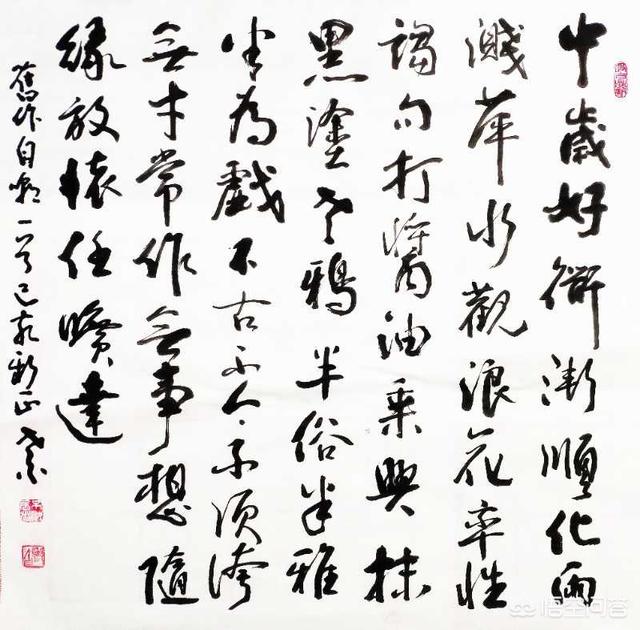 中歲好衜漸順化雨
濺萍水觀浪花率性
謅句打醬油乘興抹
黑塗老鴉半俗半雅
半為戲不古不今不須誇
無才常作無事想隨
緣放懷任曠達
舊作自嘲一首己亥新正
悟空问答